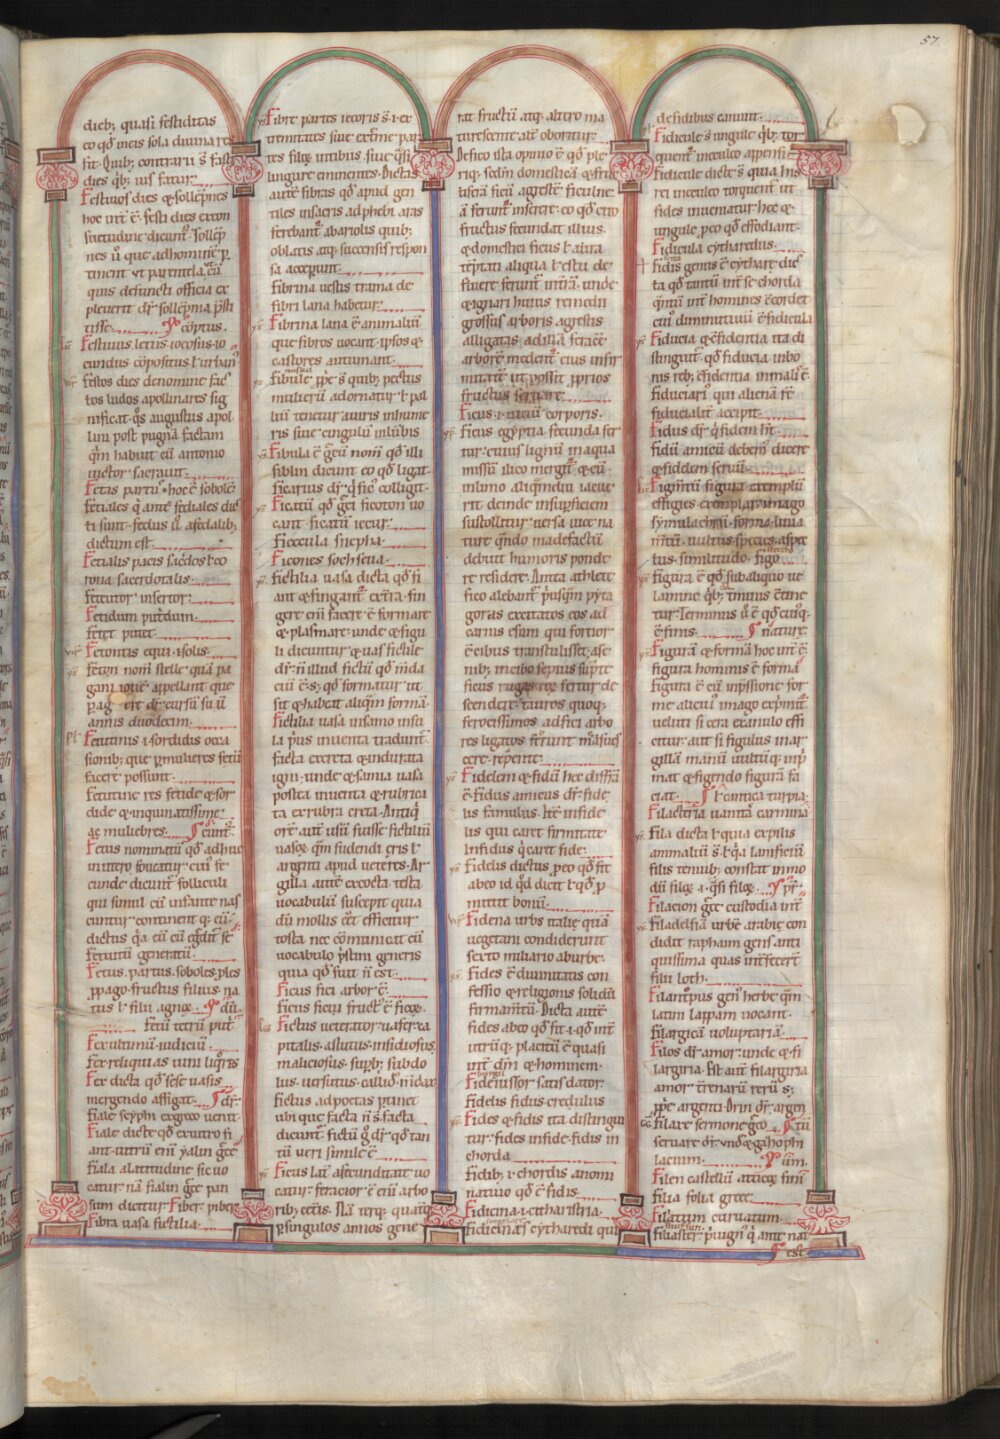 57.
dieb; quasi festiditas
eo qđ in eis sola diuina res
fit. Quib; contrarii s̄ fasti
dies q̄b; ius fatur.
Festiuos dies & sollēpnes
hoc int̄ ē. festi dies extra con
suetudine dicunt᷑. sollēp
nes ū que ad homine p̄
tinent ut parentela. cū
quis defuncti officia ex
pleuerit dr̄ sollēpnia p̄sti
tisse. cōptus.
Festiuus. letus. iocosus. io
cundus cōpositus ł urban᷒
Festos dies de nomine fac
tos ludos apollinares sig
nificat. q̄s augustus apol
lini post pugnā factam
q̄m habuit cū antonio
uictor sacrauit.
Fetas partu᷒. hoc ē sobolē.
Fetiales q̄ ante fediales dic
ti sunt. fedus ū a fedalib;
dictum est.
Fetialis pacis sacdos ł co
rona sacerdotalis.
Fetutor insertor.
Fetidum putdum.
Fetet putet.
Fetontis equi. solis.
Feton nom̄ stelle quā pa
gani iouē appellant que
annis duodecim.
Fetutinis. sordidis occa
sionib; que p̄ mulieres fetū
facere possunt.
Fetutine res fetide & sor
dide & inquinatissime
ac muliebres. eunt᷑.
Fetus nominatū qđ adhuc
in utero foueatur. cui᷒ se
cunde dicunt᷑ folliculi
qui simul cū infante nas
cuntur continent q; eū.
dictus q̄a cū eū egdit᷑ se
feruntū generatū.
Fetus. partus. soboles. ples
ppago. fructus filius. na
tus ł filii. agnoe.
fetū tetrū put᷑.
Fex ultimū. uidicuū.
Fex reliquias uini liq̄ris
Fex dicta qđ sese uasis
mergendo affigat. dr̄.
Fiale scyphi ex greco uenit.
Fiale dicte qđ ex uitro fi
ant. uitrū eni yalin gce
Fiala a latitudine sic uo
catur nā fialin gce pan
sum dicitur. Fiber. piber
Fibra uasa fictilia.
Fibre partes iecoris s̄. i. ex
tremitates siue extime par
tes filoꝝ intibus siue q̄si
lingure eminentes. Dictas
aute fibras qđ apud gen
tiles in sacris ad phebi aras
ferebant᷑ a bariolis quib;
oblatis atq; succensis respon
sa acciperunt.
Fibrina uestis trama de
fibri lana habetur.
Fibrina lana ē animaliū
que fibros uocant. ipsos &
castores autumant.
Fibule pp̄e s̄ quib; pectus
mulierū adornatur ł pal
liū tenetur a uiris in hume
ris siue cingulū in lūbis
Fibula ē ḡcū nom̄ qđ illi
fiblin dicunt eo qđ ligat.
Ficarius dr̄. q̄ fic᷒ colligit.
Ficatū qđ ḡci ficoton uo
cant. ficatū iecur.
Ficecula snepha.
Ficones sochseua.
Fictilia uasa dicta qđ fi
ant & fingant᷑ ex tra. fin
gere eni facere ē formare
& plasmare. unde & figu
li dicuntur. & uas fictile
dr̄. n̄ illud fictū qđ mda
ciū ē. s; qđ formatur ut
sit & habeat aliqm formā.
Fictilia uasa in samo insu
la p̄us inuenta tradunt᷑.
facta ex creta & indurata
igni. unde & samia uasa
postea inuenta & rubrica
ta ex rubra creta. Antiq̄
ore. aut usū fuisse fictiliū
uasoꝝ. q̄m fudendi ęris ł
argenti apud ueteres. Ar
gilla aute excocta testa
uocabulū suscepit quia
dū mollis eet efficietur
tosta nec cōmunicat cū
uocabulo p̄stim generis
quia qđ fuit n̄ est.
Ficus fici arbor ē.
Ficus ficui fruct᷒ ē ficoꝝ.
Fictus ueterator. uafer. ca
pitalis. astutus. insidiosus.
maliciosus. supb; subdo
lus. uersutus. callid᷒. m̄dax
Fictus ad poetas p̄tinet
ubi que facta n̄ s̄. facta
dicunt. fictū ḡ dr̄. qđ tan
tū ueri simile ē.
Ficus lat̄ a fecunditate uo
catur. feracior ē eni arbo
rib; ceteis. Nā t̄rq; quatq;
p singulos annos gene
rat fructū atq; altero ma
turescente alt᷑ oboritur.
De fico ista opinio ē qđ ple
riq; sedm domestica & fruc
tiferā ficū agreste ficulne
ā ferunt᷑ inserere. eo qđ cito
fructus fecundat illius.
& domestici ficus ł aura
tēptati aliqua ł estu de
fluere ferunt᷑ intrā. unde
& ignari huius remedii
grossus arboris agrestis
alligatas ad illā feracē
arbore medent᷑ eius infir
mitati ut possit pprios
fructus seruare.
Ficus. i. uiciū corporis.
Ficus egyptia fecunda fer
tur. cuius lignū in aqua
missū ilico mergit᷑. & cū
in limo aliq̄mdiu iacue
rit deinde in supficiem
sustollitur. uersa uice na
ture. q̄ndo madefactū
debuit humoris ponde
re residere. Antea athlete
fico alebant᷑ p̄usqm pyta
goras exercitatos eos ad
carnis esum qui fortior
ē cibus transtulisset. ase
nib; in cibo sepius supte
ficus rugas eoꝝ fertur de
scendere. tauros quoq;
ferocissimos ad fici arbo
res ligatos ferunt᷑ māsues
cere. repente.
Fidelem & fidū hec diffrā
ē. Fidus amicus dr̄. fide
lis famulus. Itē infide
lis qui caret firmitate
Infidus q̄ caret fide.
Fidelis dictus. p eo qđ fit
ab eo id qđ dicit ł qđ p
mittit bonū.
Fidena urbs italię quā
uegetani condiderunt
sexto miliario ab urbe.
Fides ē diuinitatis con
fessio & religionis solidū
firmamtū. Dicta aute
fides ab eo qđ fit. i. qđ int̄
utrūq; placitū ē quasi
int̄ dm̄ & hominem.
Fideiussor satisdator.
Fidelis fidus credulus
Fides & fidus ita distingun
tur. fides in fide. fidus in
chorda.
Fidib; i. chordis a nomi
natiuo qđ ē fidis.
Fidicina. i. citharistria.
Fidicinas cytharedi qui
de fidibus canunt.
Fidicule s̄ ungule q̄b; tor
quent᷑ in eculeo appensi.
Fidicule dicte s̄ quia his
rei in eculeo torquent᷑ ut
fides inueniatur. hec &
ungule. p eo qđ effodiant.
Fidicula cytharedus.
Fidis genus ē cythare dic
ta qđ tantū int̄ se chorda
q̄ntū int̄ homines ēcordet
cui᷒ diminutiuū ē fidicula
Fiducia & cfidentia ita di
stinguit᷑. qđ fiducia in bo
nis reb; cfidentia in malis ē.
Fiduciari᷒ qui alienā rē
fiducialit᷑ accepit.
Fidus dr̄. q̄ fidem ht̄.
Fidū amicū debem᷒ dicere
& fidelem seruū.
Figmtū figura exemplū
effigies exemplar. imago
symulachrū. forma. linia
mtū. uultus. species. aspec
tus. similitudo. figo
Figura ē qđ sub aliquo ue
lamine q̄b; tminus ctine
tur. Terminus ū ē qđ cui᷒q;
ē finis. nature.
Figurā & formā hoc int̄ ē.
figura hominis ē forma.
figura ē cū inp̄ssione for
me alicui᷒ imago exprimit᷑.
ueluti si cera ex anulo effi
citur. aut si figulus in ar
gillā manū uultūq; inp̄
mat & figendo figurā fa
ciat. ł cantica turpia.
Filacteria. uanita carmina.
Fila dicta ł quia ex pilis
animaliū s̄ ł q̄a lanificiū
filis tenuib; constat immo
dū filoꝝ. i. q̄si filoꝝ.
Filacion. gce custodia int̄
Filadelfiā urbe arabię con
didit raphaim gens anti
quissima quas int̄fecert
filii loth.
Filantopus gen᷒ herbe q̄m
latini lappam uocant.
Filargica. uoluptaria.
Filos dr̄. amor. unde & fi
largiria. Est aut filargiria
amor t̄renarū rerū s;
pp̄e argenti. Drin dr̄. argen
Filare sermone ḡco
seruare dr̄. und & gazophi
lacium.
Filen castellū atticę fuit
Filia folia grece.
Filatum curuatum.
Filiaster. p̄uign᷒ q̄ ante nat᷒
est.